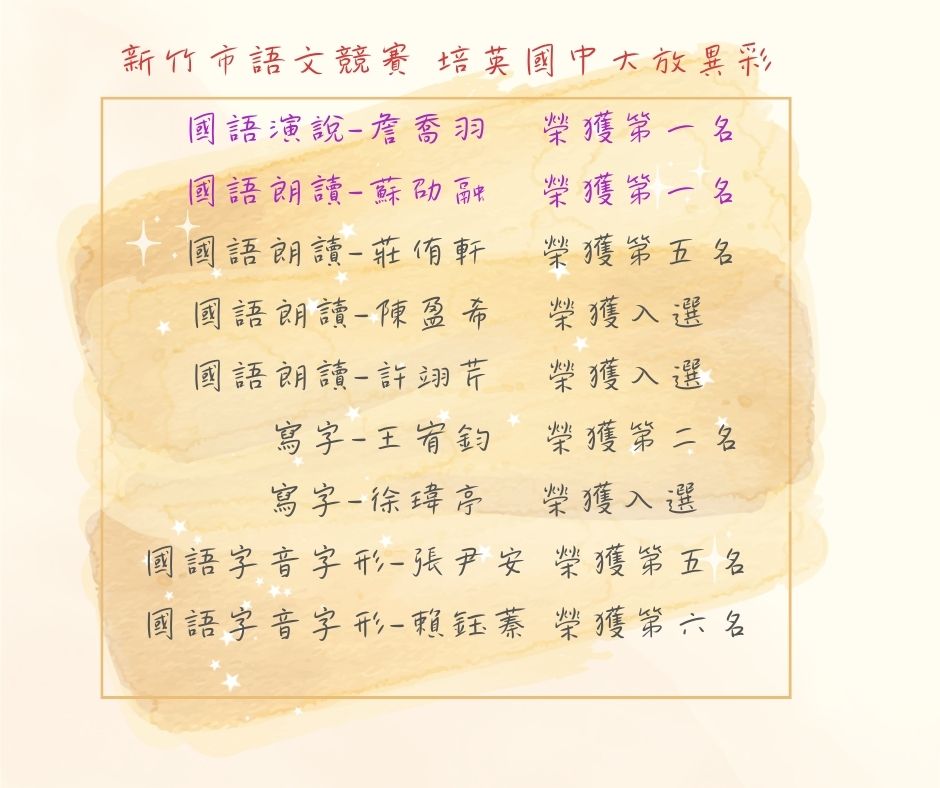 新竹市語文競賽 培英國中大放異彩
國語演說-詹喬羽 榮獲第一名
國語朗讀-蘇劭融 榮獲第一名
國語朗讀-莊侑軒 榮獲第五名
國語朗讀-陳盈希 榮獲入選
國語朗讀-許翊芹 榮獲入選
寫字-王宥鈞 榮獲第二名
寫字-徐瑋亭 榮獲入選
國語字音字形-張尹安 榮獲第五名
國語字音字形-賴鈺蓁 榮獲第六名